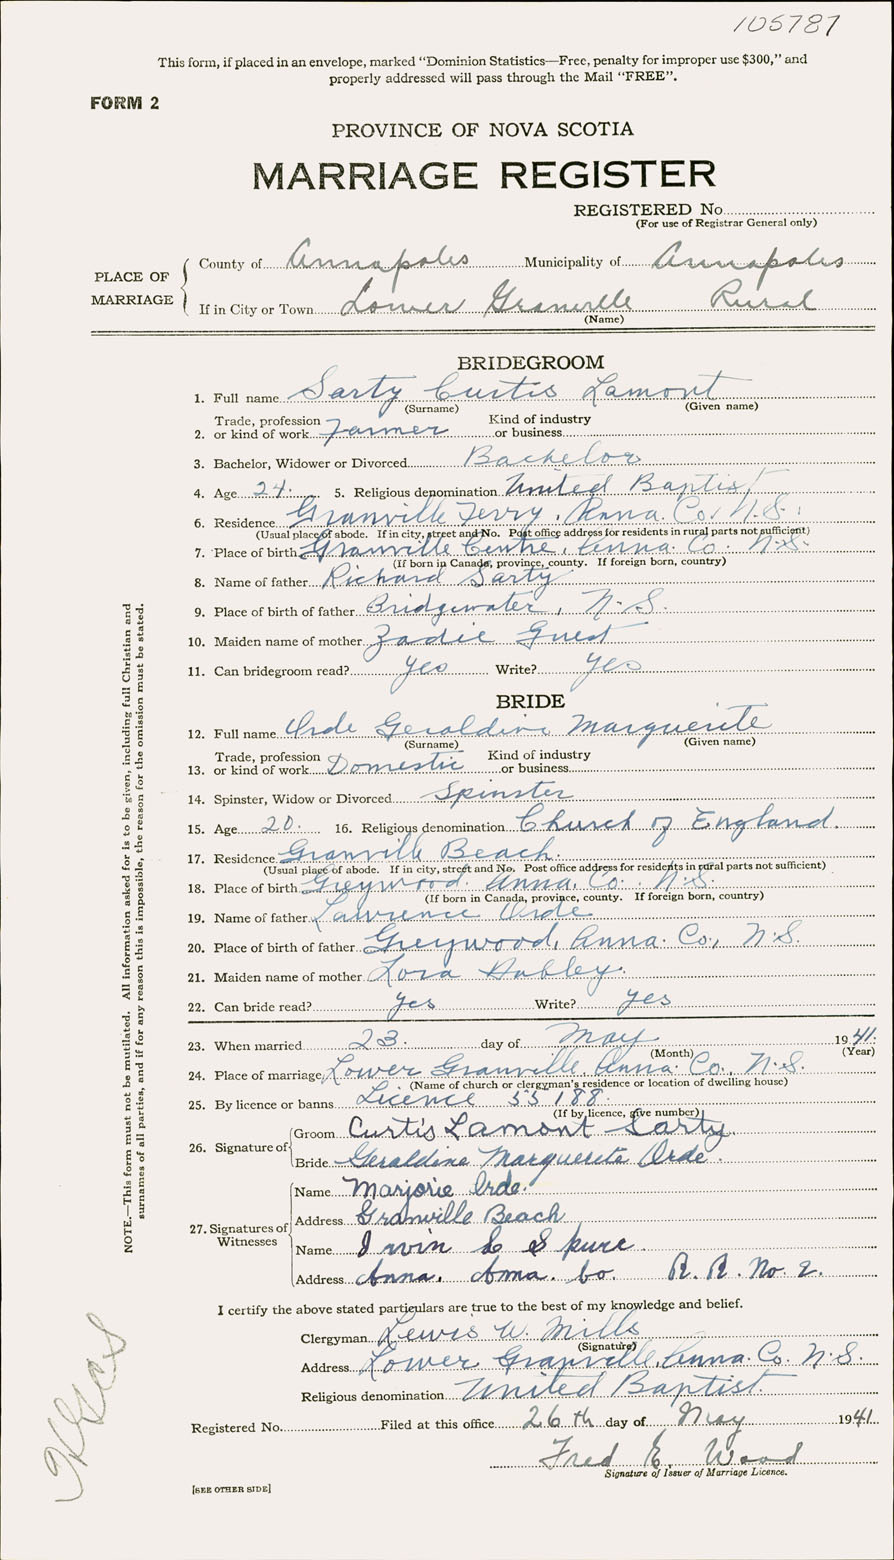 105787
This form, if placed in an envelope, marked “Dominion Statistics—Free, penalty for improper use $300,” and
properly addressed will pass through the Mail “FREE”.
FORM 2
PROVINCE OF NOVA SCOTIA
MARRIAGE REGISTER
REGISTERED No.
(For use of Registrar General only)
PLACE OF MARRIAGE
County of Annapolis Municipality of Annapolis
If in City or Town Lower Granville Rural
(Name)
BRIDEGROOM
1. Full name Sarty Curtis Lamont
(Surname) (Given name)
Trade, profession Kind of industry
2. or kind of work Farmer or business
3. Bachelor, Widower or Divorced Bachelor
4. Age 24. 5. Religious denomination United Baptist
6. Residence Granville Ferry, Anna. Co. N.S.
(Usual place of abode. If in city, street and No. Post office address for residents in rural parts not sufficient)
7. Place of birth Granville Centre, Anna. Co. N.S.
(If born in Canada, province, county. If foreign born, country)
8. Name of father Richard Sarty
9. Place of birth of father Bridgewater, N.S.
10. Maiden name of mother Zadie Guest
11. Can bridegroom read? yes Write? yes
BRIDE
12. Full name Orde Geraldine Marguerite
(Surname) (Given name)
Trade, profession Kind of industry
13. or kind of work Domestic or business
14. Spinster, Widow or Divorced Spinster
15. Age 20. 16. Religious denomination Church of England.
17. Residence Granville Beach.
(Usual place of abode. If in city, street and No. Post office address for residents in rural parts not sufficient)
18. Place of birth Greywood. Anna. Co. N.S.
(If born in Canada, province, county. If foreign born, country)
19. Name of father Lawrence Orde
20. Place of birth of father Greywood, Anna. Co., N.S.
21. Maiden name of mother Lora
22. Can bride read? yes Write? yes
23. When married 23. day of May 1941.
(Month) (Year)
24. Place of marriage Lower Granville, Anna. Co., N.S.
(Name of church or clergyman's residence or location of dwelling house)
25. By licence or banns Licence 55188.
(If by licence, give number)
26. Signature of Groom Curtis Lamont Sarty.
Bride Geraldine Marguerite Orde.
27. Signatures of Witnesses Name Marjorie Orde.
Address Granville Beach
Name Irvin L Spurr.
Address Anna. Anna. Co. R. R. No. 2.
I certify the above stated particulars are true to the best of my knowledge and belief.
Clergyman Lewis W. Mills
(Signature)
Address Lower Granville, Anna. Co. N.S.
Religious denomination United Baptist.
Registered No. Filed at this office 26th day of May 1941.
Fred E. Wood
Signature of Issuer of Marriage Licence.
[SEE OTHER SIDE]
NOTE.—This form must not be mutilated. All information asked for is to be given, including full Christian and
surnames of all parties, and if for any reason this is impossible, the reason for the omission must be stated.